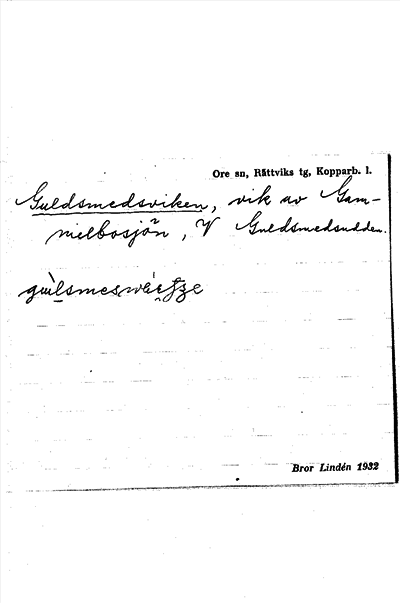 Ore sn, Rättviks tg, Kopparb. l.
Guldsmedsviken, vik av Gam-
melbosjön, V Guldsmedsudden.
Bror Lindén 1932